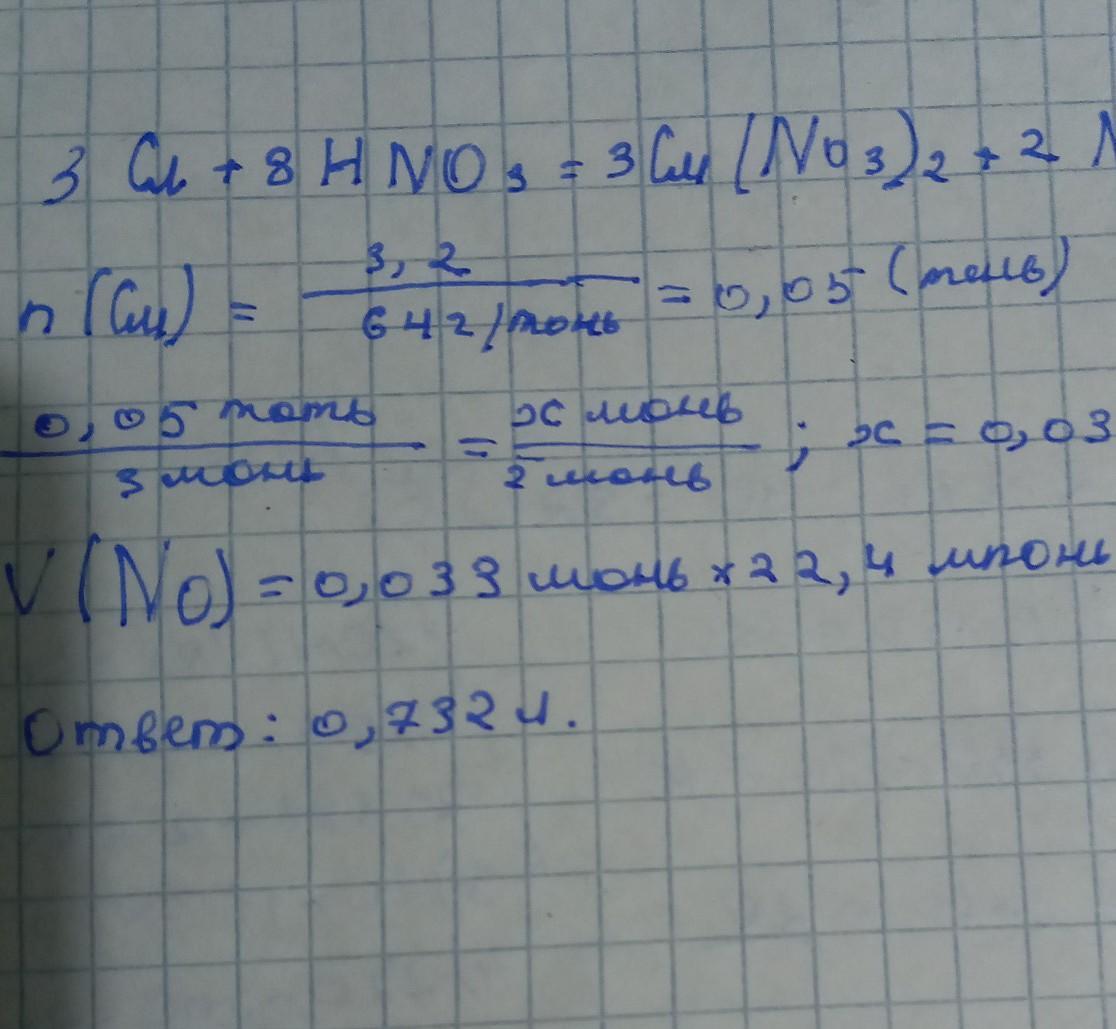 3 Cu + 8 HNO3 = 3 Cu (NO3)2 + 2 N
n (Cu) = 3,2 / 64 г/моль = 0,05 (моль)
0,05 моль / 3 моль = x моль / 2 моль ; x = 0,03
V (NO) = 0,033 моль × 22,4 л/моль
Ответ: 0,732 л.